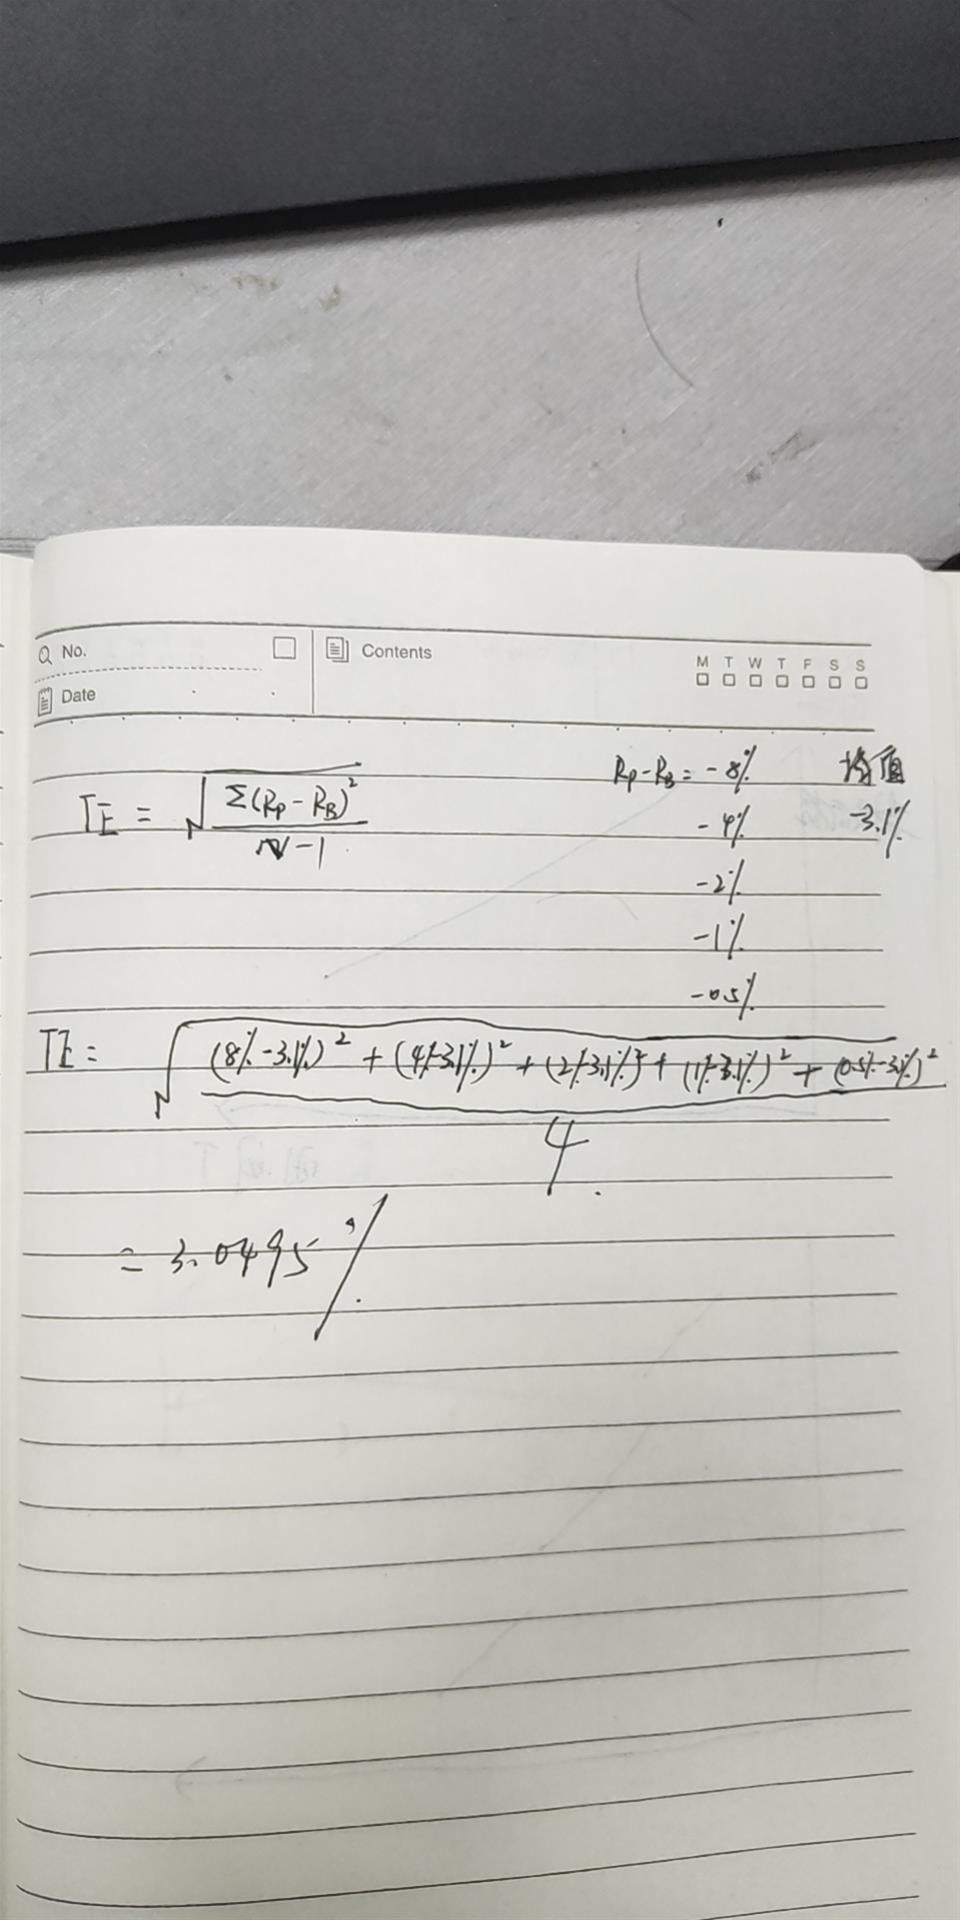 No.
Contents
M T W T F S S
Date
TE = √(Σ(Rp - RB)² / N-1)
Rp-RB = -8% 均值
-4% -3.1%
-2%
-1%
-0.5%
TE = √((8%-3.1%)² + (4%-3.1%)² + (2%-3.1%)² + (1%-3.1%)² + (0.5%-3.1%)² / 4)
= 3.0495%